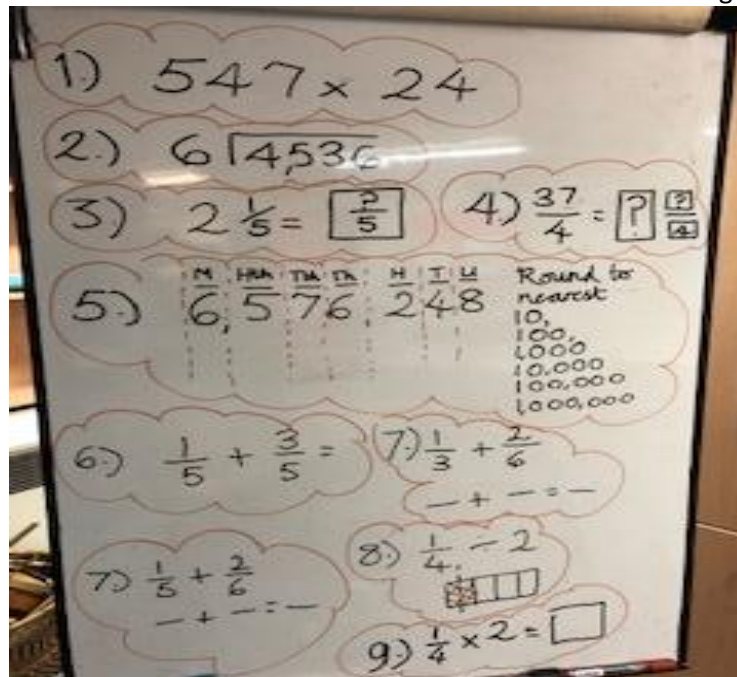 1.) 547 x 24
2.) 6 4,536
3) 2 1/5 = ?/5
4) 37/4 = ? ?/4
5.) M HTh TTh Th H T U
6,576 248
Round to
nearest
10,
100,
1000
10,000
100,000
1000,000
6.) 1/5 + 3/5 =
7.) 1/3 + 2/6
— + — = —
7.) 1/5 + 2/6
— + — = —
8.) 1/4 - 2
9.) 1/4 x 2 =